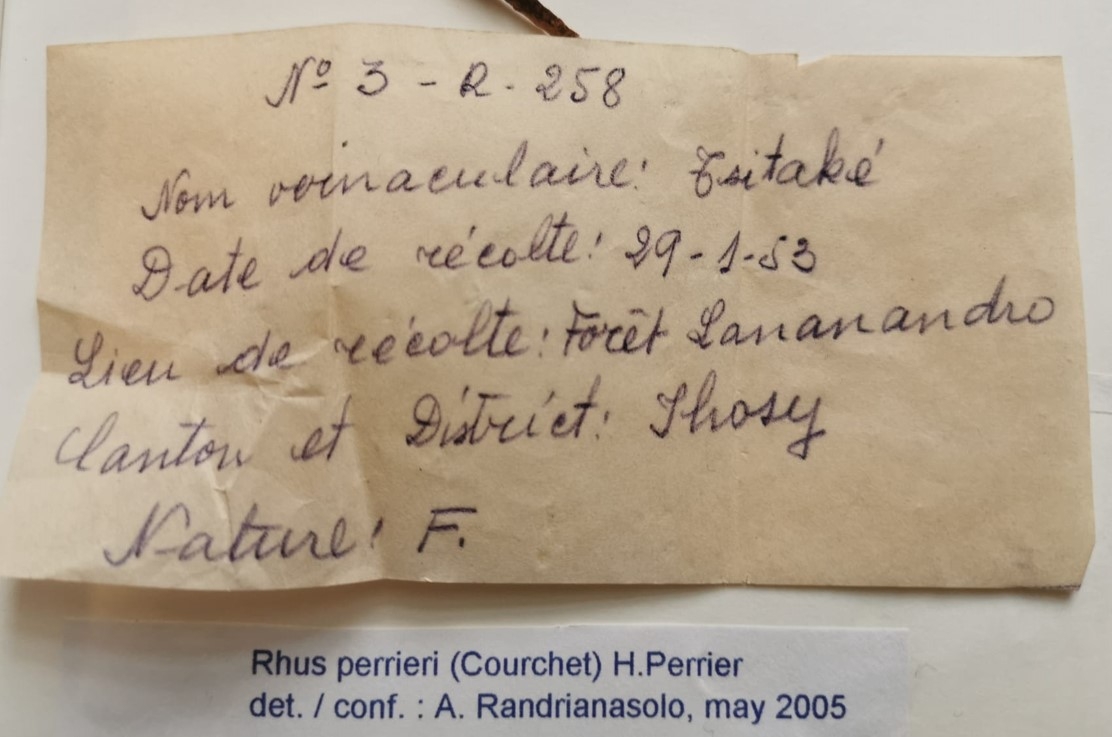 Nº 3 - R. 258
Nom voinaculaire: Tsitaké
Date de récolte: 29-1-53
Lieu de récolte: Forêt Lananandro
Canton et District: Ihosy
Nature: F.
Rhus perrieri (Courchet) H.Perrier
det. / conf. : A. Randrianasolo, may 2005